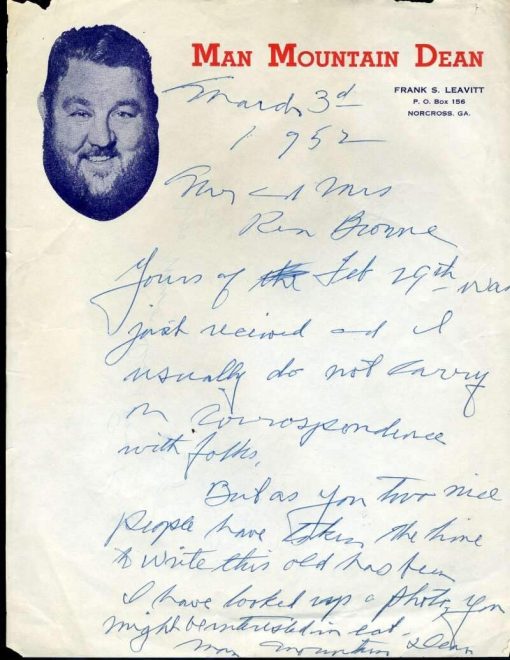 MAN MOUNTAIN DEAN
FRANK S. LEAVITT
P. O. Box 156
NORCROSS, GA.
March 3d
1952
Mr and Mrs
Rex Browne
Yours of the Feb 29th was
just received and I
usually do not carry
on correspondence
with folks,
But as you two nice
people have taken the time
to write this old has been
I have looked up a photo, you
might be interested in
Man Mountain Dean